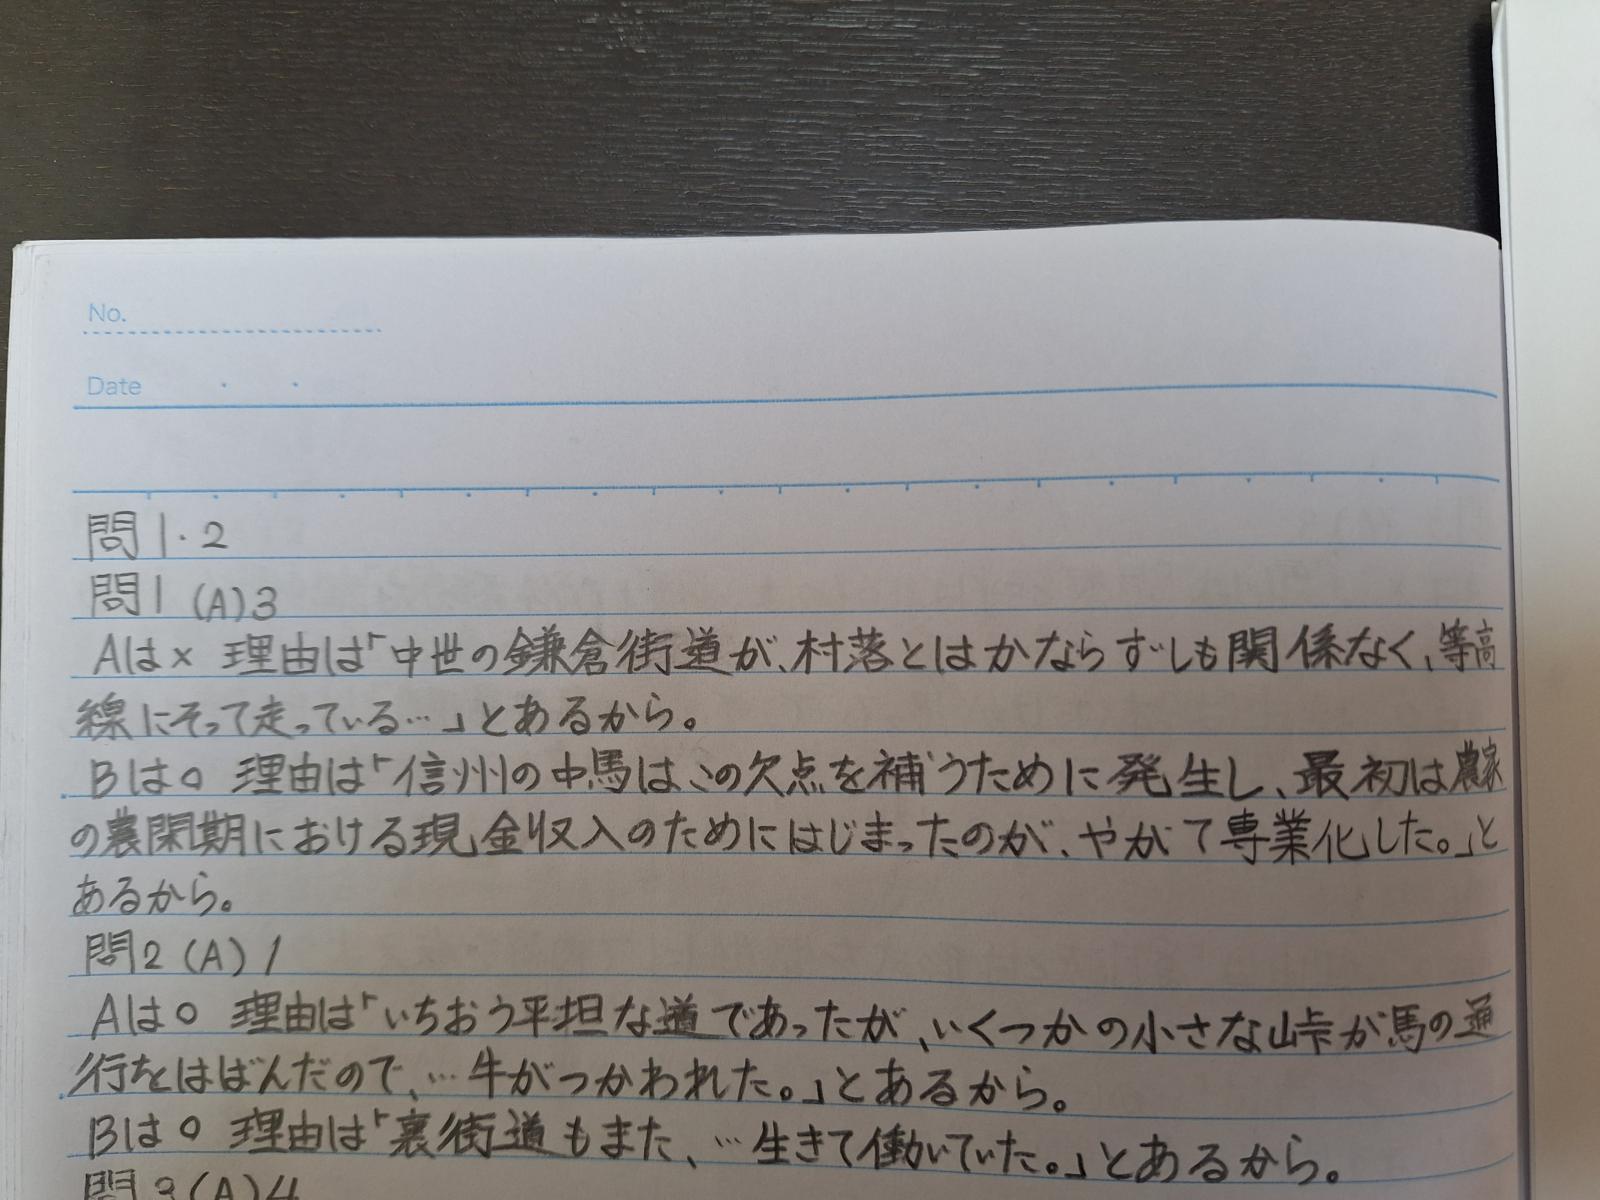 No.
Date
問1・2
問1 (A)3
Aは× 理由は「中世の鎌倉街道が、村落とはかならずしも関係なく、等高
線にそって走っている…」とあるから。
Bは○ 理由は「信州の中馬はこの欠点を補うために発生し、最初は農家
の農閑期における現金収入のためにはじまったのが、やがて専業化した。」と
あるから。
問2 (A)1
Aは○ 理由は「いちおう平坦な道であったが、いくつかの小さな峠が馬の通
行をはばんだので、…牛がつかわれた。」とあるから。
Bは○ 理由は「裏街道もまた、…生きて働いていた。」とあるから。
問3(A)4